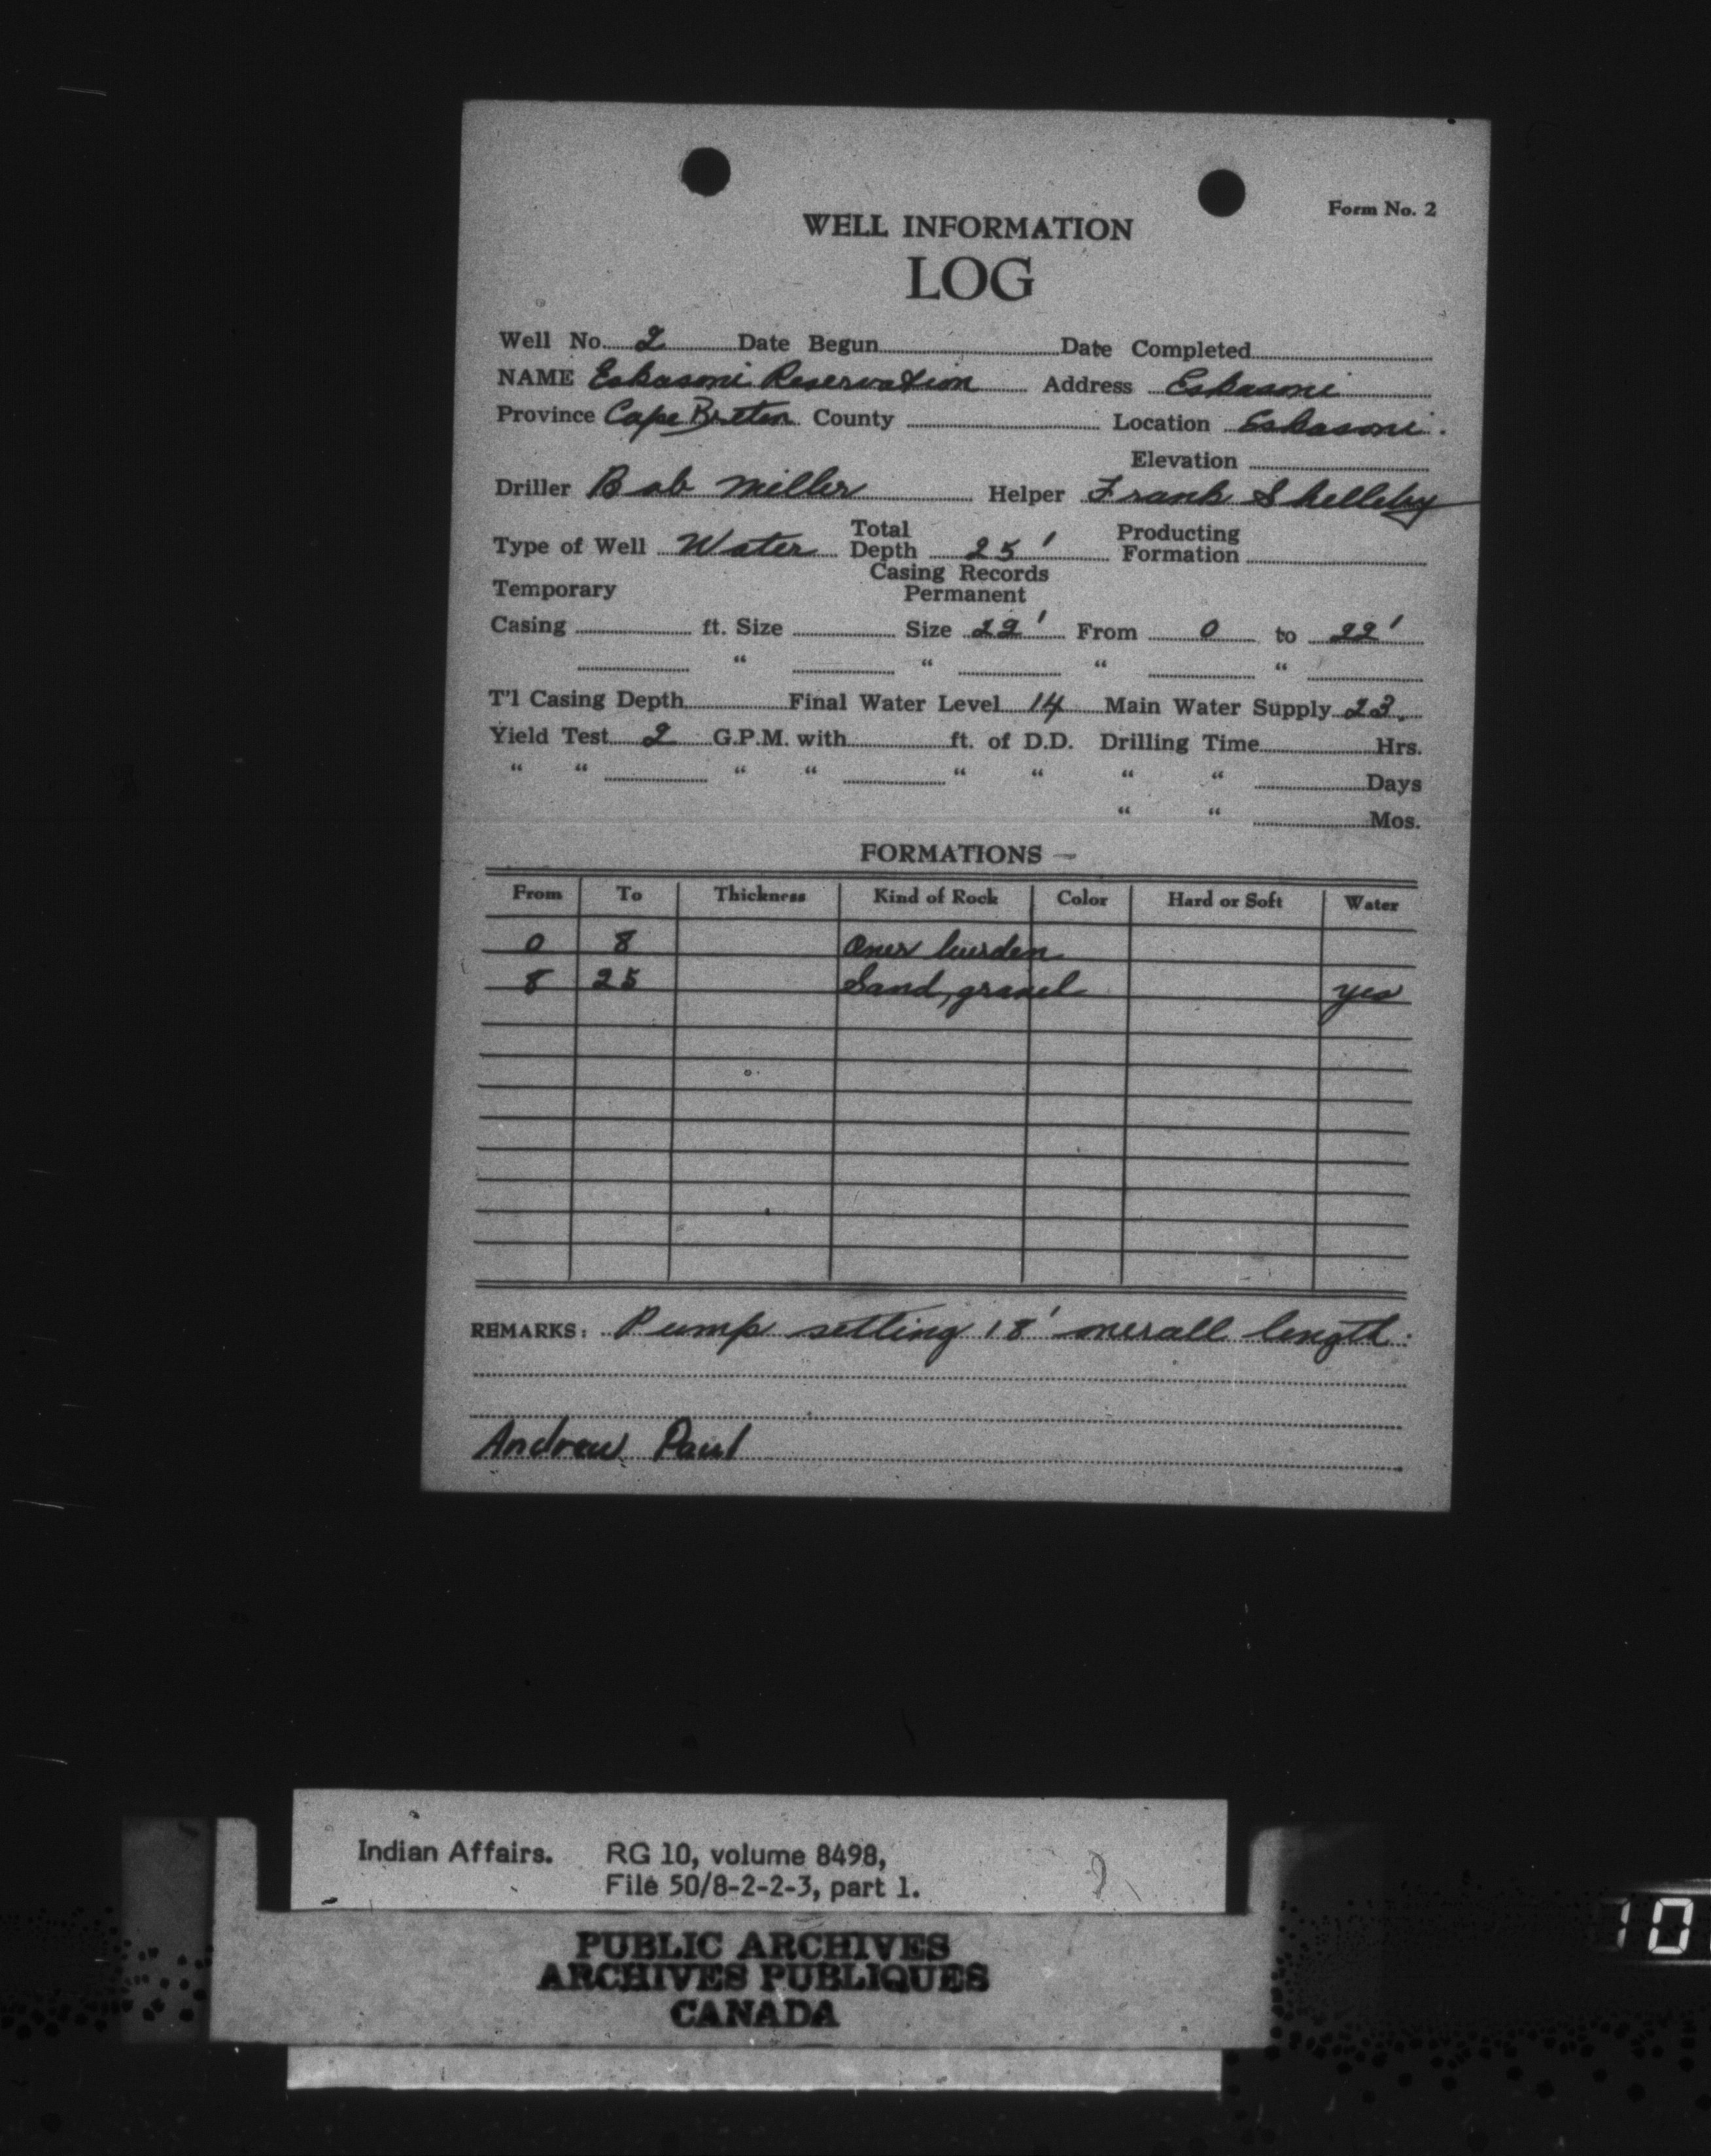 Form No. 2
WELL INFORMATION
LOG
Well No. 2 Date Begun Date Completed
NAME Eskasoni Reservation Address Eskasoni
Province Cape Breton County Location Eskasoni.
Elevation
Driller Bob Miller Helper Frank Shelleby
Type of Well Water Total Depth 25' Producting Formation
Casing Records
Temporary Permanent
Casing ft. Size Size 22' From 0 to 22'
" " " "
T'l Casing Depth Final Water Level 14 Main Water Supply 23.
Yield Test 2 G.P.M. with ft. of D.D. Drilling Time Hrs.
" " " " " " " " Days
" " Mos.
FORMATIONS —
From To Thickness Kind of Rock Color Hard or Soft Water
0 8 Over burden
8 25 Sand, gravel yes
REMARKS: Pump setting 18' overall length.
Andrew Paul
Indian Affairs. RG 10, volume 8498,
File 50/8-2-2-3, part 1.
PUBLIC ARCHIVES
ARCHIVES PUBLIQUES
CANADA
10